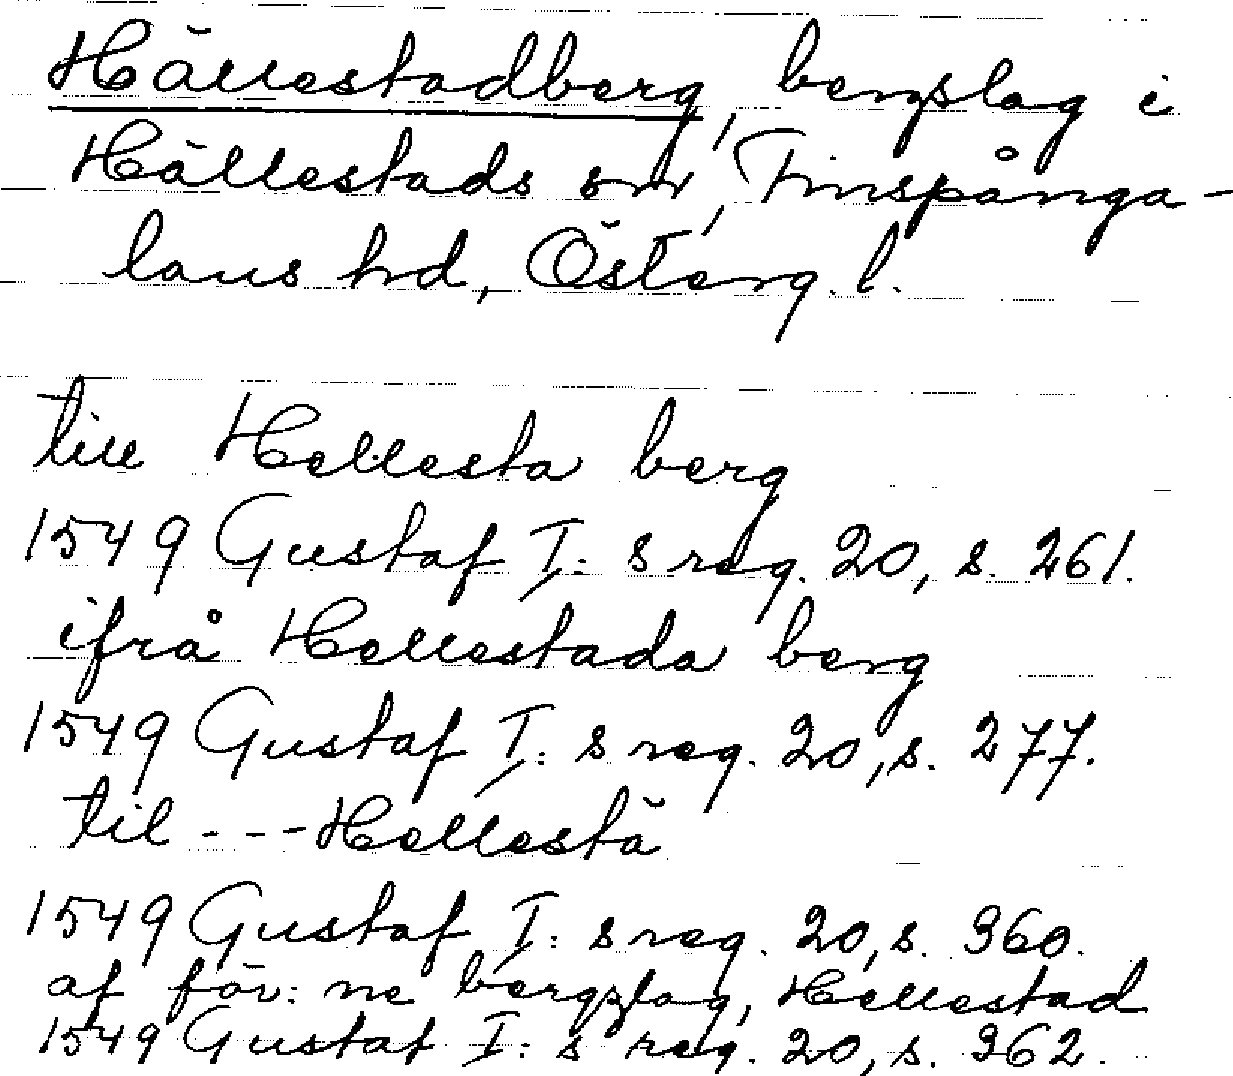 Hällestadberg, bergslag i
Hällestads sn, Finspånga-
läns hd, Österg. l.
till Hellesta berg
1549 Gustaf I: s reg. 20, s. 261.
ifrå Hellestada berg
1549 Gustaf I: s reg. 20, s. 277.
til --- Hellestä
1549 Gustaf I: s reg. 20, s. 360.
af för: ne bergzlag, Hellestad
1549 Gustaf I: s reg. 20, s. 362.